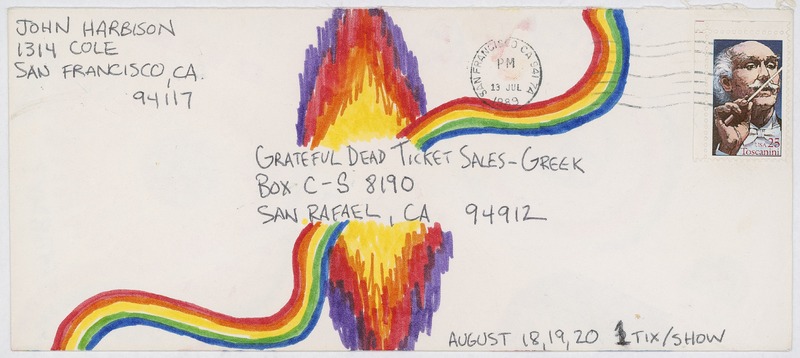 JOHN HARBISON
1314 COLE
SAN FRANCISCO, CA.
94117
SAN FRANCISCO CA 941 7A
PM
13 JUL
1989
USA 25
Toscanini
GRATEFUL DEAD TICKET SALES-GREEK
BOX C-S 8190
SAN RAFAEL, CA 94912
AUGUST 18,19,20 1 TIX/SHOW